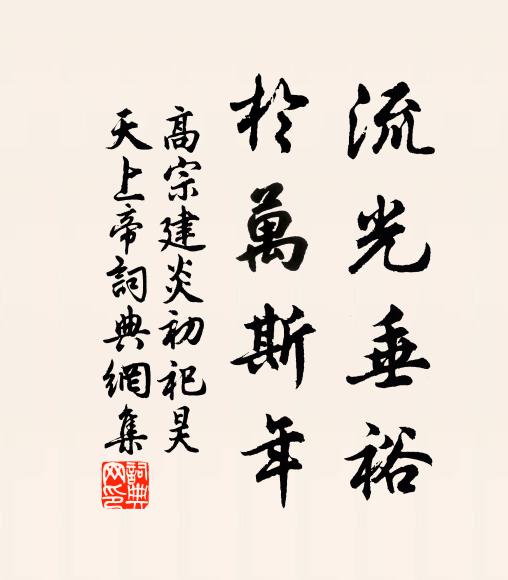 流光垂裕
於萬斯年
高宗建炎初祀昊
天上帝詞典網集
詞典网印